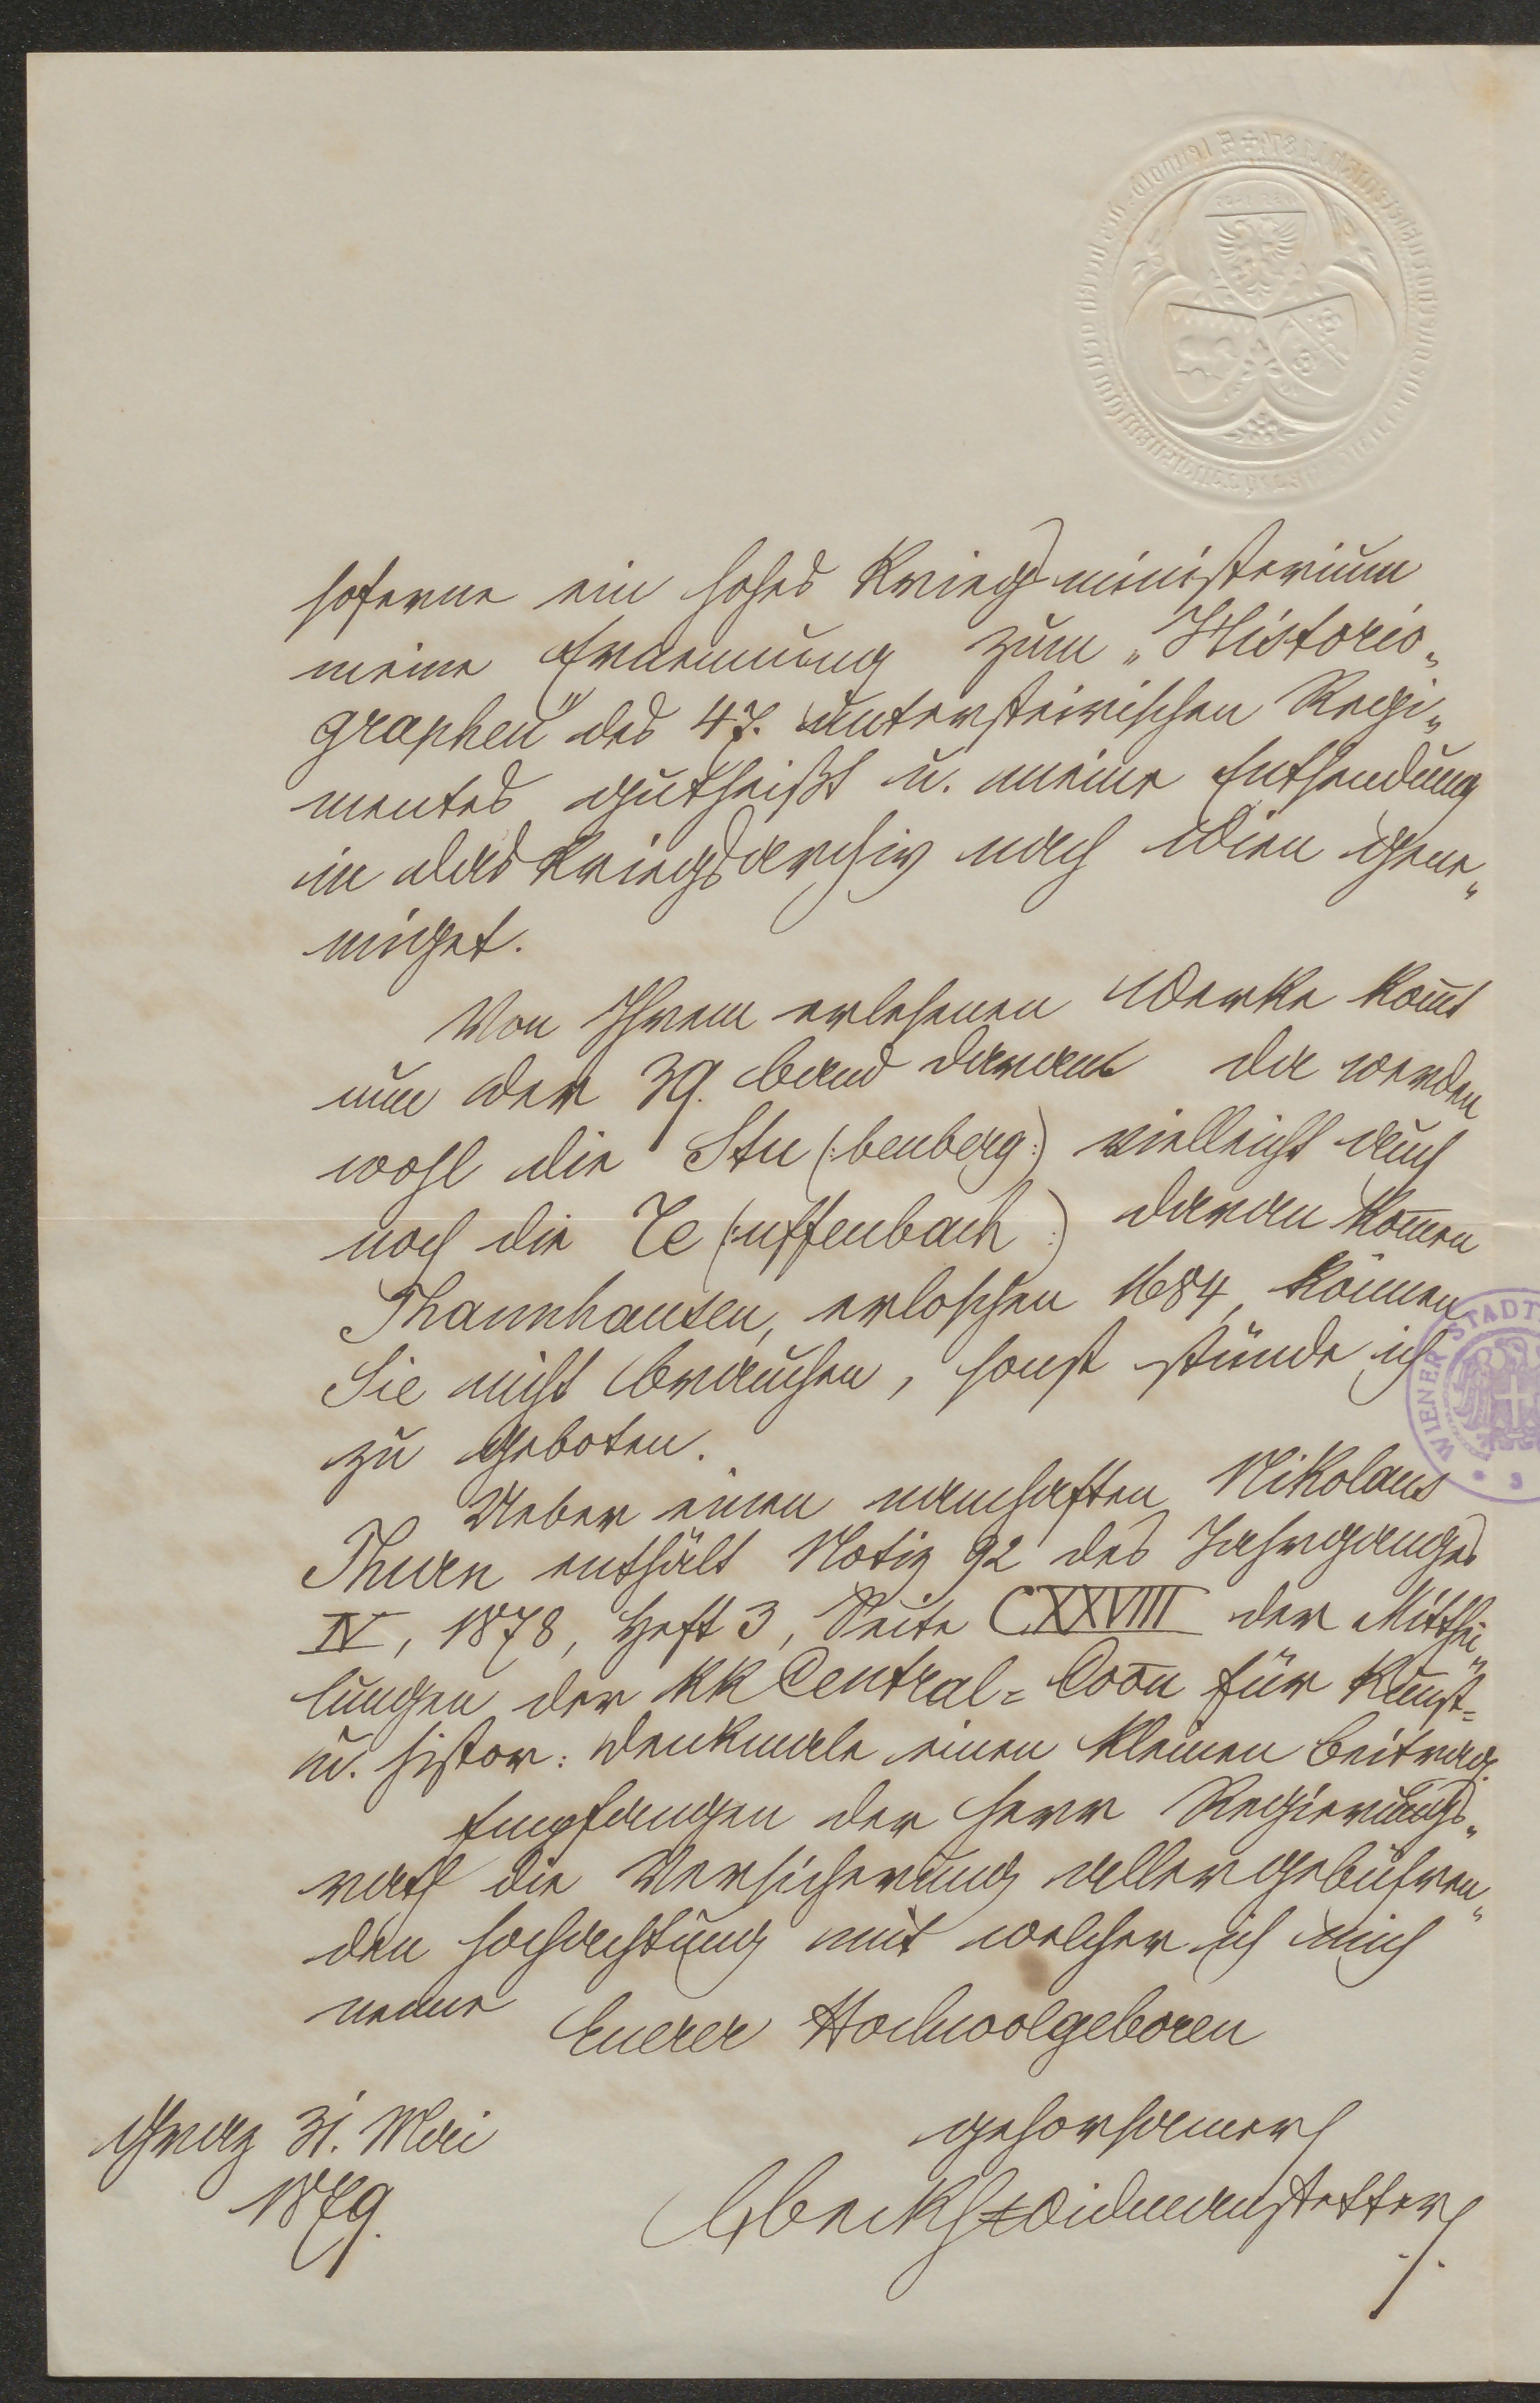 soferne ein hohes Kriegsministerium
meine Ernennung zum „Historio„
graphen" des 47. untersteirischen Regi„
mentes gutheißt u. meine Entsendung
in das Kriegsarchiv nach Wien geneh„
miget.
Von Ihrem erlesenen Werke kom̄t
nun der 39. Band daran da werden
wohl die Stu (:benberg:) vielleicht auch
noch die Te (:uffenbach:) daran kom̄en
Thannhausen, erloschen 1684, können
Sie nicht brauchen, sonst stünde ich
zu Geboten.
Ueber einen namhaften Nikolaus
Thurn enthält Notiz 92 des Jahrganges
IV, 1878, Heft 3, Seite CXXVIII der Mitthei„
lungen der KK Central=Coōn für Kunst=
u. histor: Denkmale einen kleinen Beitrag.
Empfangen der Herr Regierungs„
rath die Versicherung aller gebühren„
den Hochachtung mit welcher ich mich
nenne
Euerer Hochwolgeboren
gehorsamer
Graz 31. Mai
1879.
LBeckhWidmanstetter
WIENER STADT